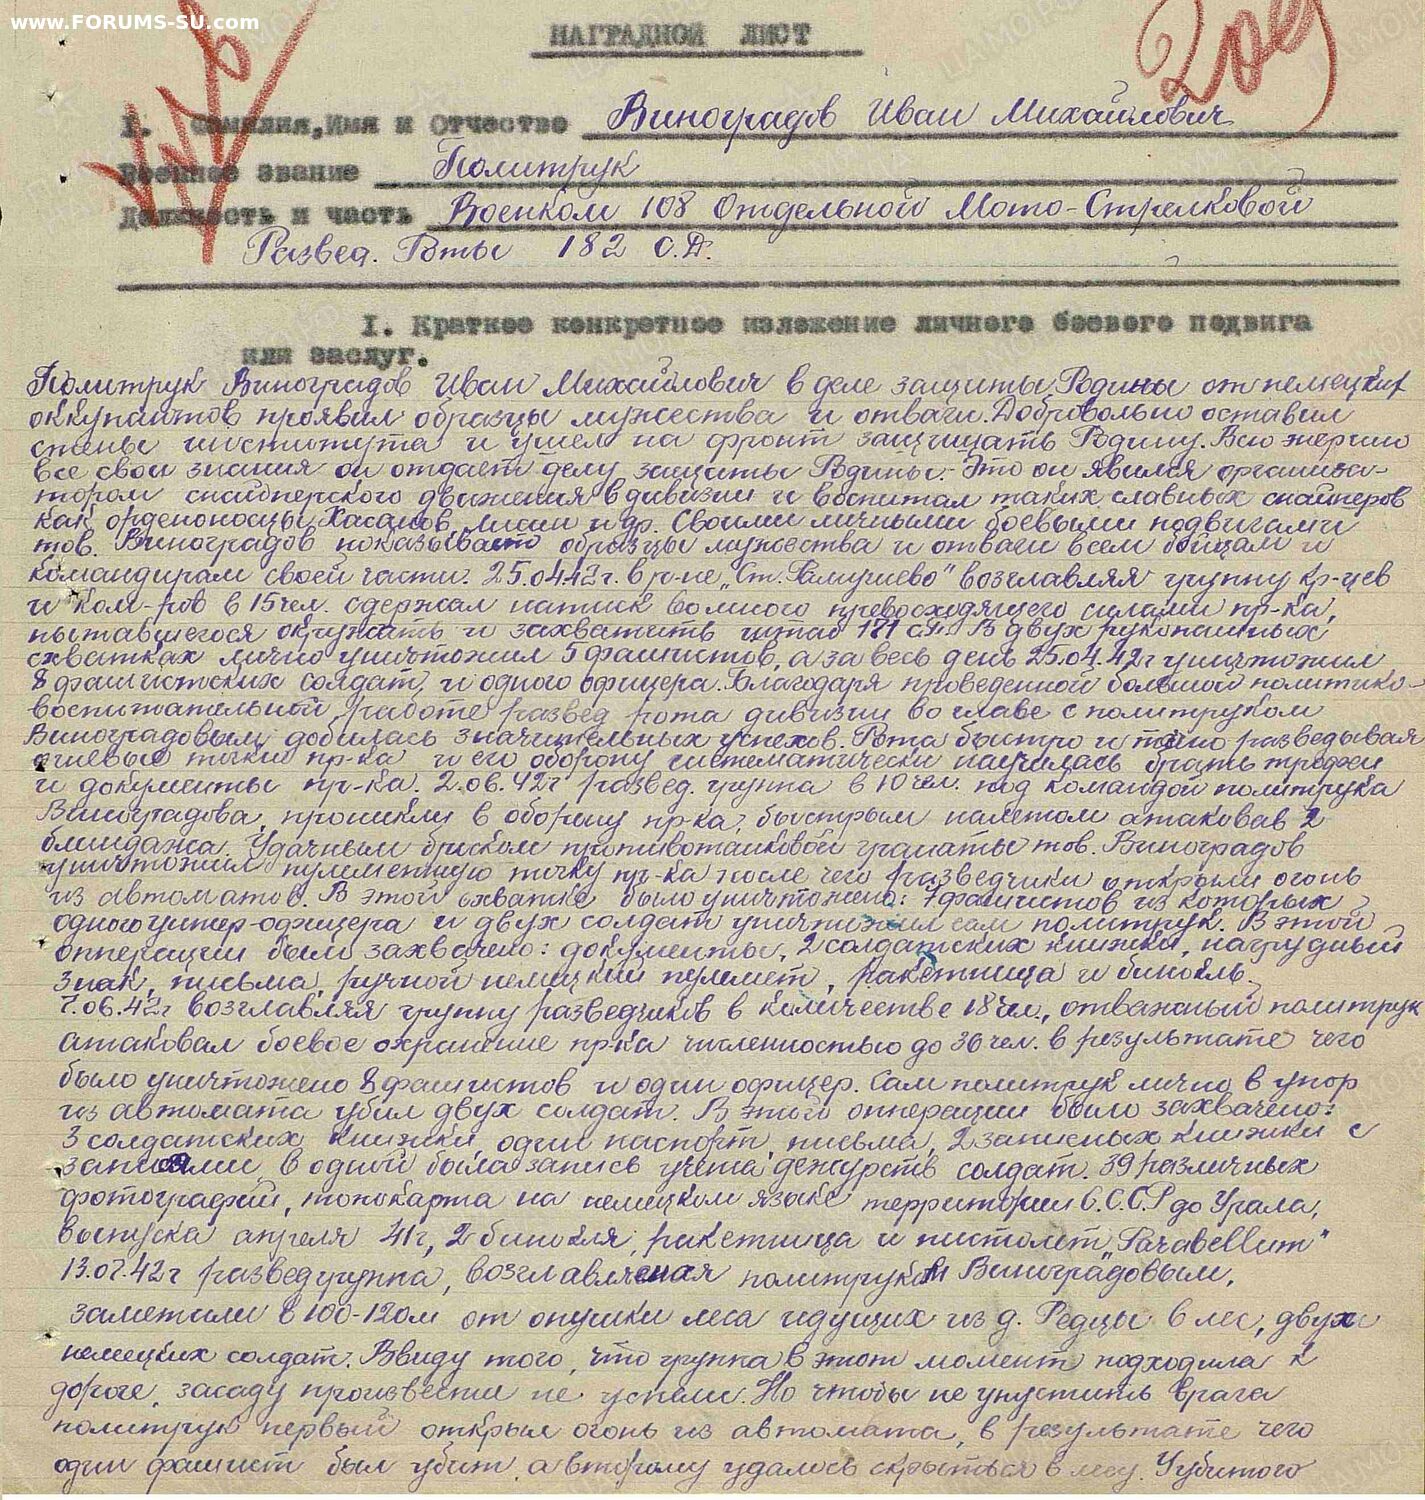 www.FORUMS-SU.com
НАГРАДНОЙ ЛИСТ
1. Фамилия, Имя и Отчество Виноградов Иван Михайлович
Военное звание Политрук
Должность и часть Военком 108 Отдельной Мото-Стрелковой
Развед. Роты 182 С.Д.
I. Краткое конкретное изложение личного боевого подвига
или заслуг.
Политрук Виноградов Иван Михайлович в деле защиты Родины от немецких
оккупантов проявил образцы мужества и отваги. Добровольно оставил
стены института и ушел на фронт защищать Родину. Всю энергию
все свои знания он отдает делу защиты Родины. Это он явился организа-
тором снайперского движения в дивизии и воспитал таких славных снайперов
как орденоносцы Хасанов, Лисин и др. Своими личными боевыми подвигами
тов. Виноградов показывает образцы мужества и отваги всем бойцам и
командирам своей части. 25.04.42г. в р-не „Ст. Рамушево" возглавляя группу кр-цев
и ком-ров в 15 чел. сдержал натиск во много превосходящего силами пр-ка,
пытавшегося окружить и захватить штаб 171 с.п. В двух рукопашных
схватках лично уничтожил 5 фашистов, а за весь день 25.04.42г уничтожил
8 фашистских солдат и одного офицера. Благодаря проведенной большой политико-
воспитательной работе развед рота дивизии во главе с политруком
Виноградовым добилась значительных успехов. Рота быстро и точно разведывая
огневые точки пр-ка и его оборону систематически научилась брать трофеи
и документы пр-ка. 2.06.42г развед. группа в 10 чел. под командой политрука
Виноградова, проникли в оборону пр-ка, быстрым налетом атаковав 2
блиндажа. Удачным броском противотанковой гранаты тов. Виноградов
уничтожил пулеметную точку пр-ка после чего разведчики открыли огонь
из автоматов. В этой схватке было уничтожено: 7 фашистов из которых
одного унтер-офицера и двух солдат уничтожил сам политрук. В этой
опперации было захвачено: документы, 2 солдатских книжки, нагрудный
знак, письма, ручной немецкий пулемет, ракетница и бинокль.
7.06.42г возглавляя группу разведчиков в количестве 18 чел., отважный политрук
атаковал боевое охранение пр-ка численностью до 36 чел. в результате чего
было уничтожено 8 фашистов и один офицер. Сам политрук лично в упор
из автомата убил двух солдат. В этой опперации было захвачено:
3 солдатских книжки, один паспорт, письма, 2 записных книжки с
записями, в одной была запись учета дежурств солдат. 39 различных
фотографий, топокарта на немецком языке территории С.С.С.Р до Урала,
выпуска апреля 41г, 2 бинокля, ракетница и пистолет „Parabellum"
13.07.42г разведгруппа, возглавляемая политруком Виноградовым,
заметили в 100-120м от опушки леса идущих из д. Редцы в лес, двух
немецких солдат. Ввиду того, что группа в этот момент подходила к
дороге, засаду произвести не успели. Но чтобы не упустить врага
политрук первый открыл огонь из автомата, в результате чего
один фашист был убит, а второму удалось скрыться в лесу. У убитого